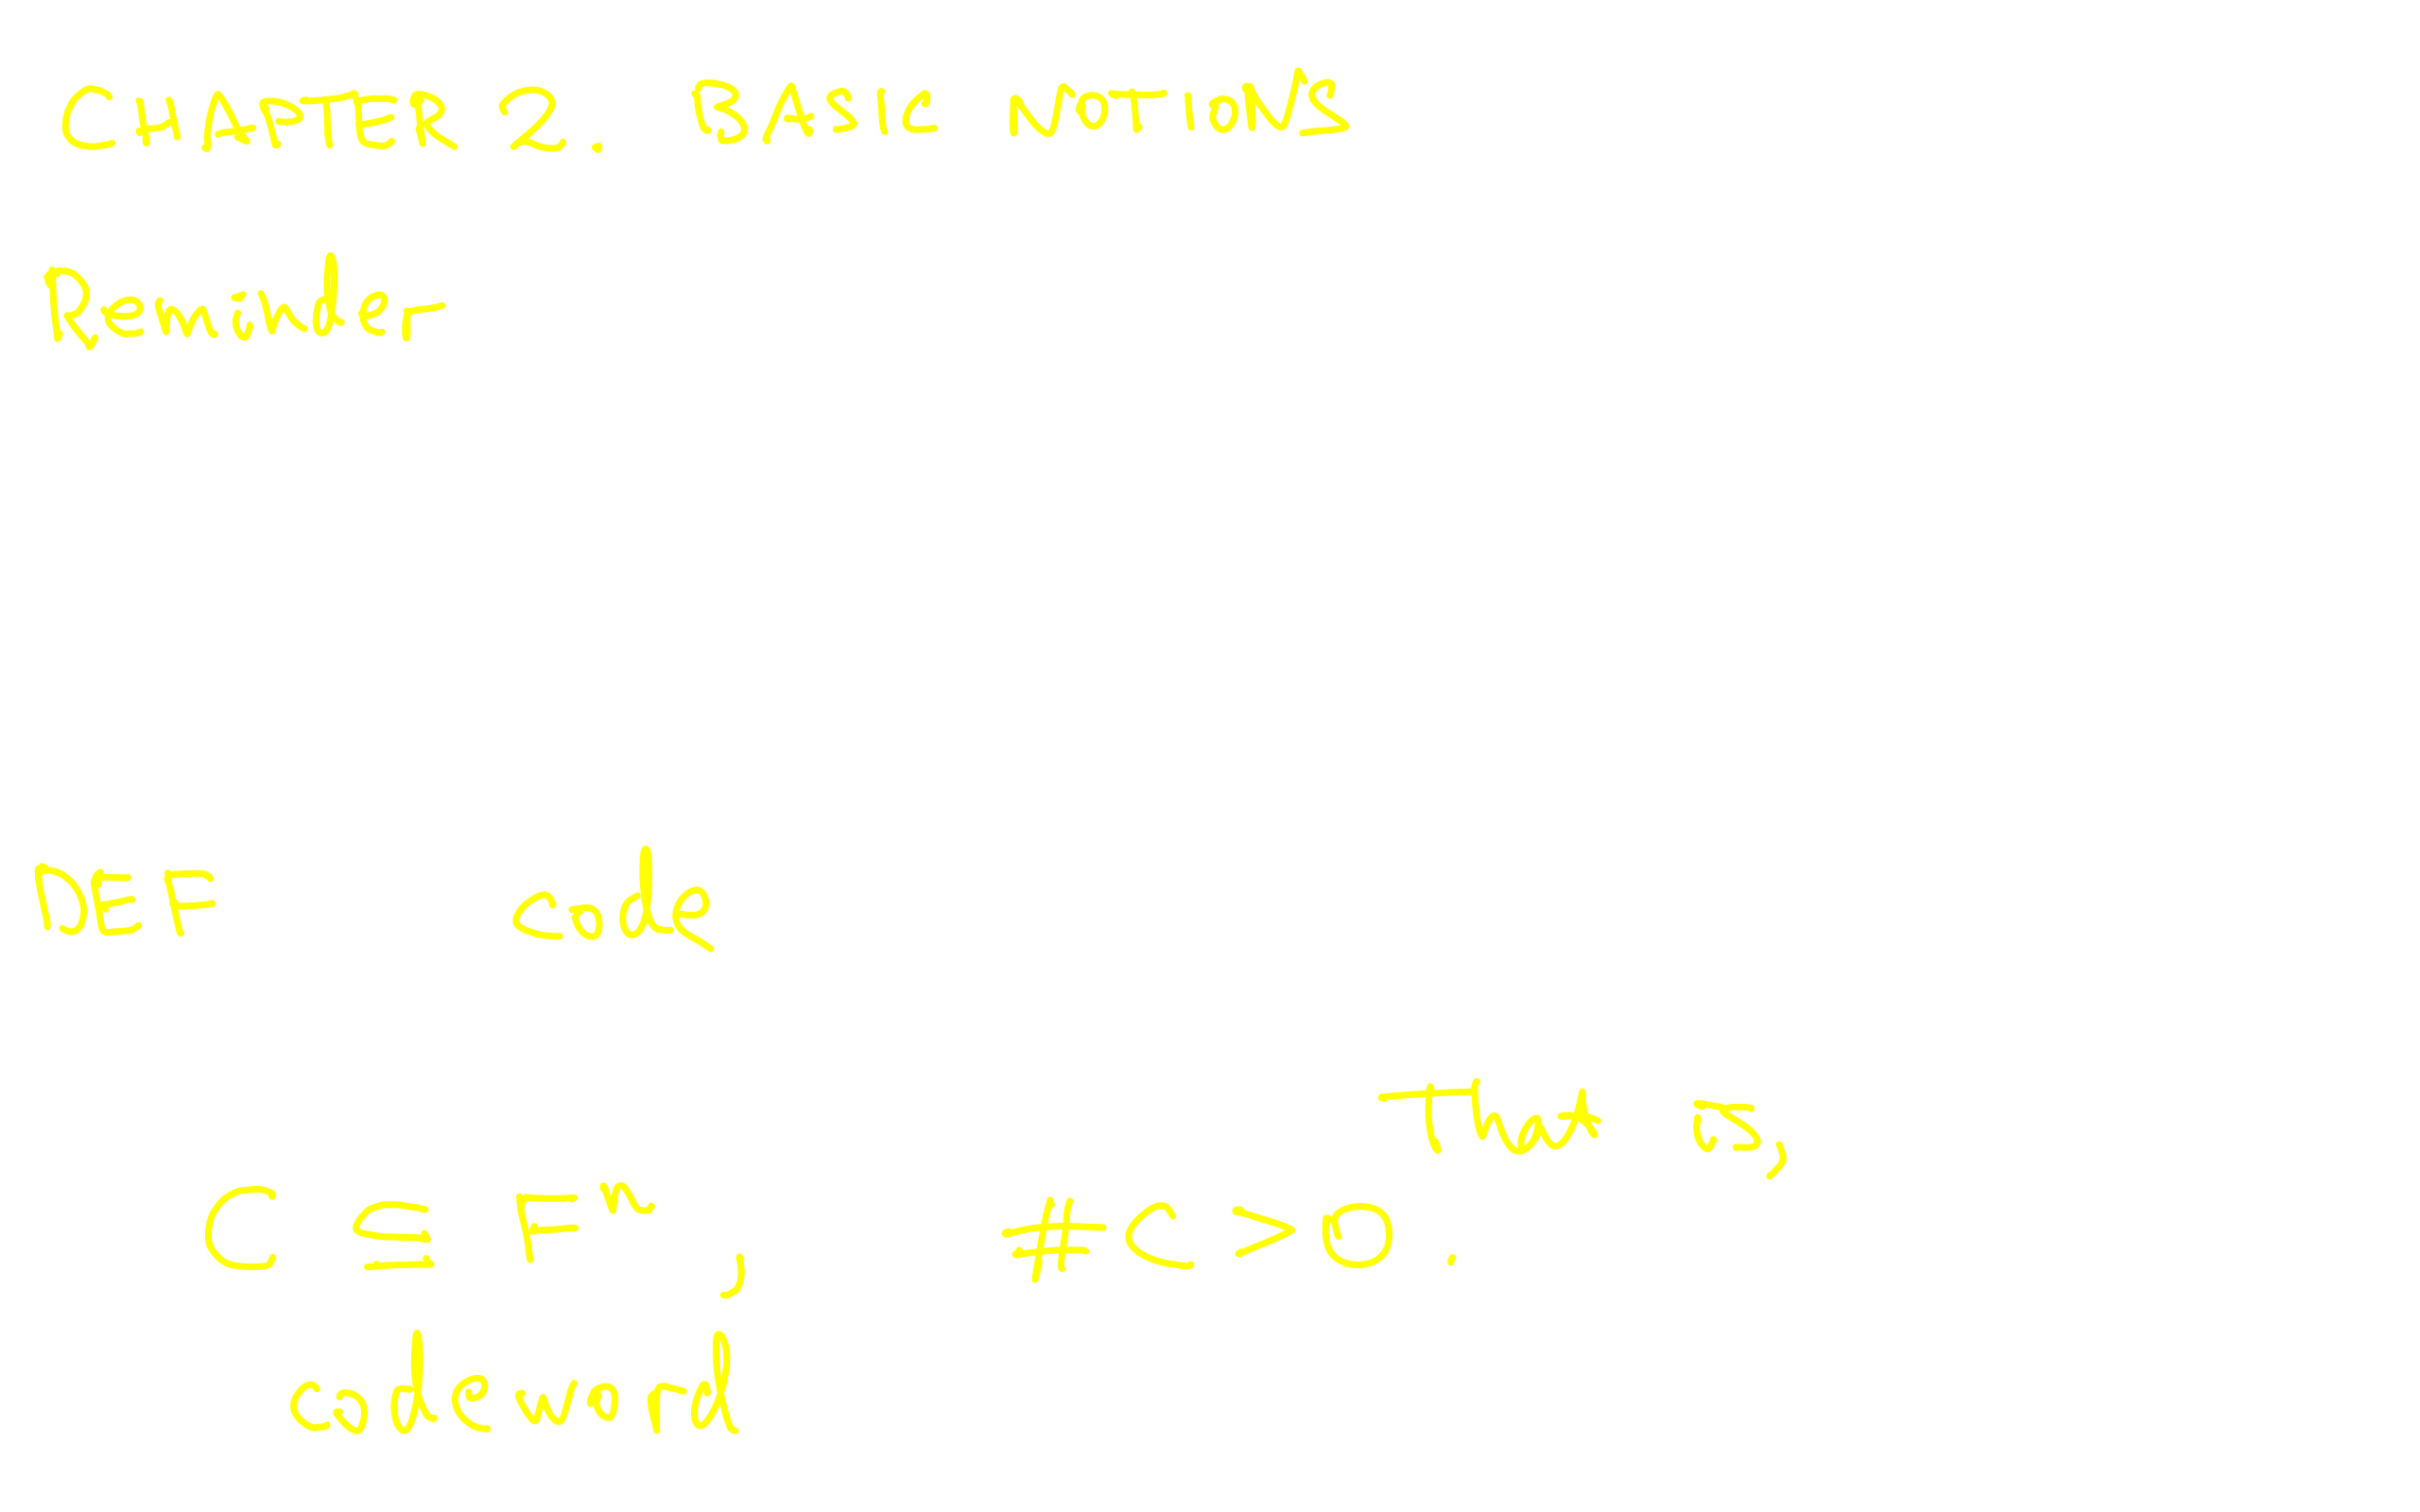 CHAPTER 2. BASIC NOTIONS
Reminder
DEF code
That is,
C ⊆ Fⁿ, #C > 0.
codeword